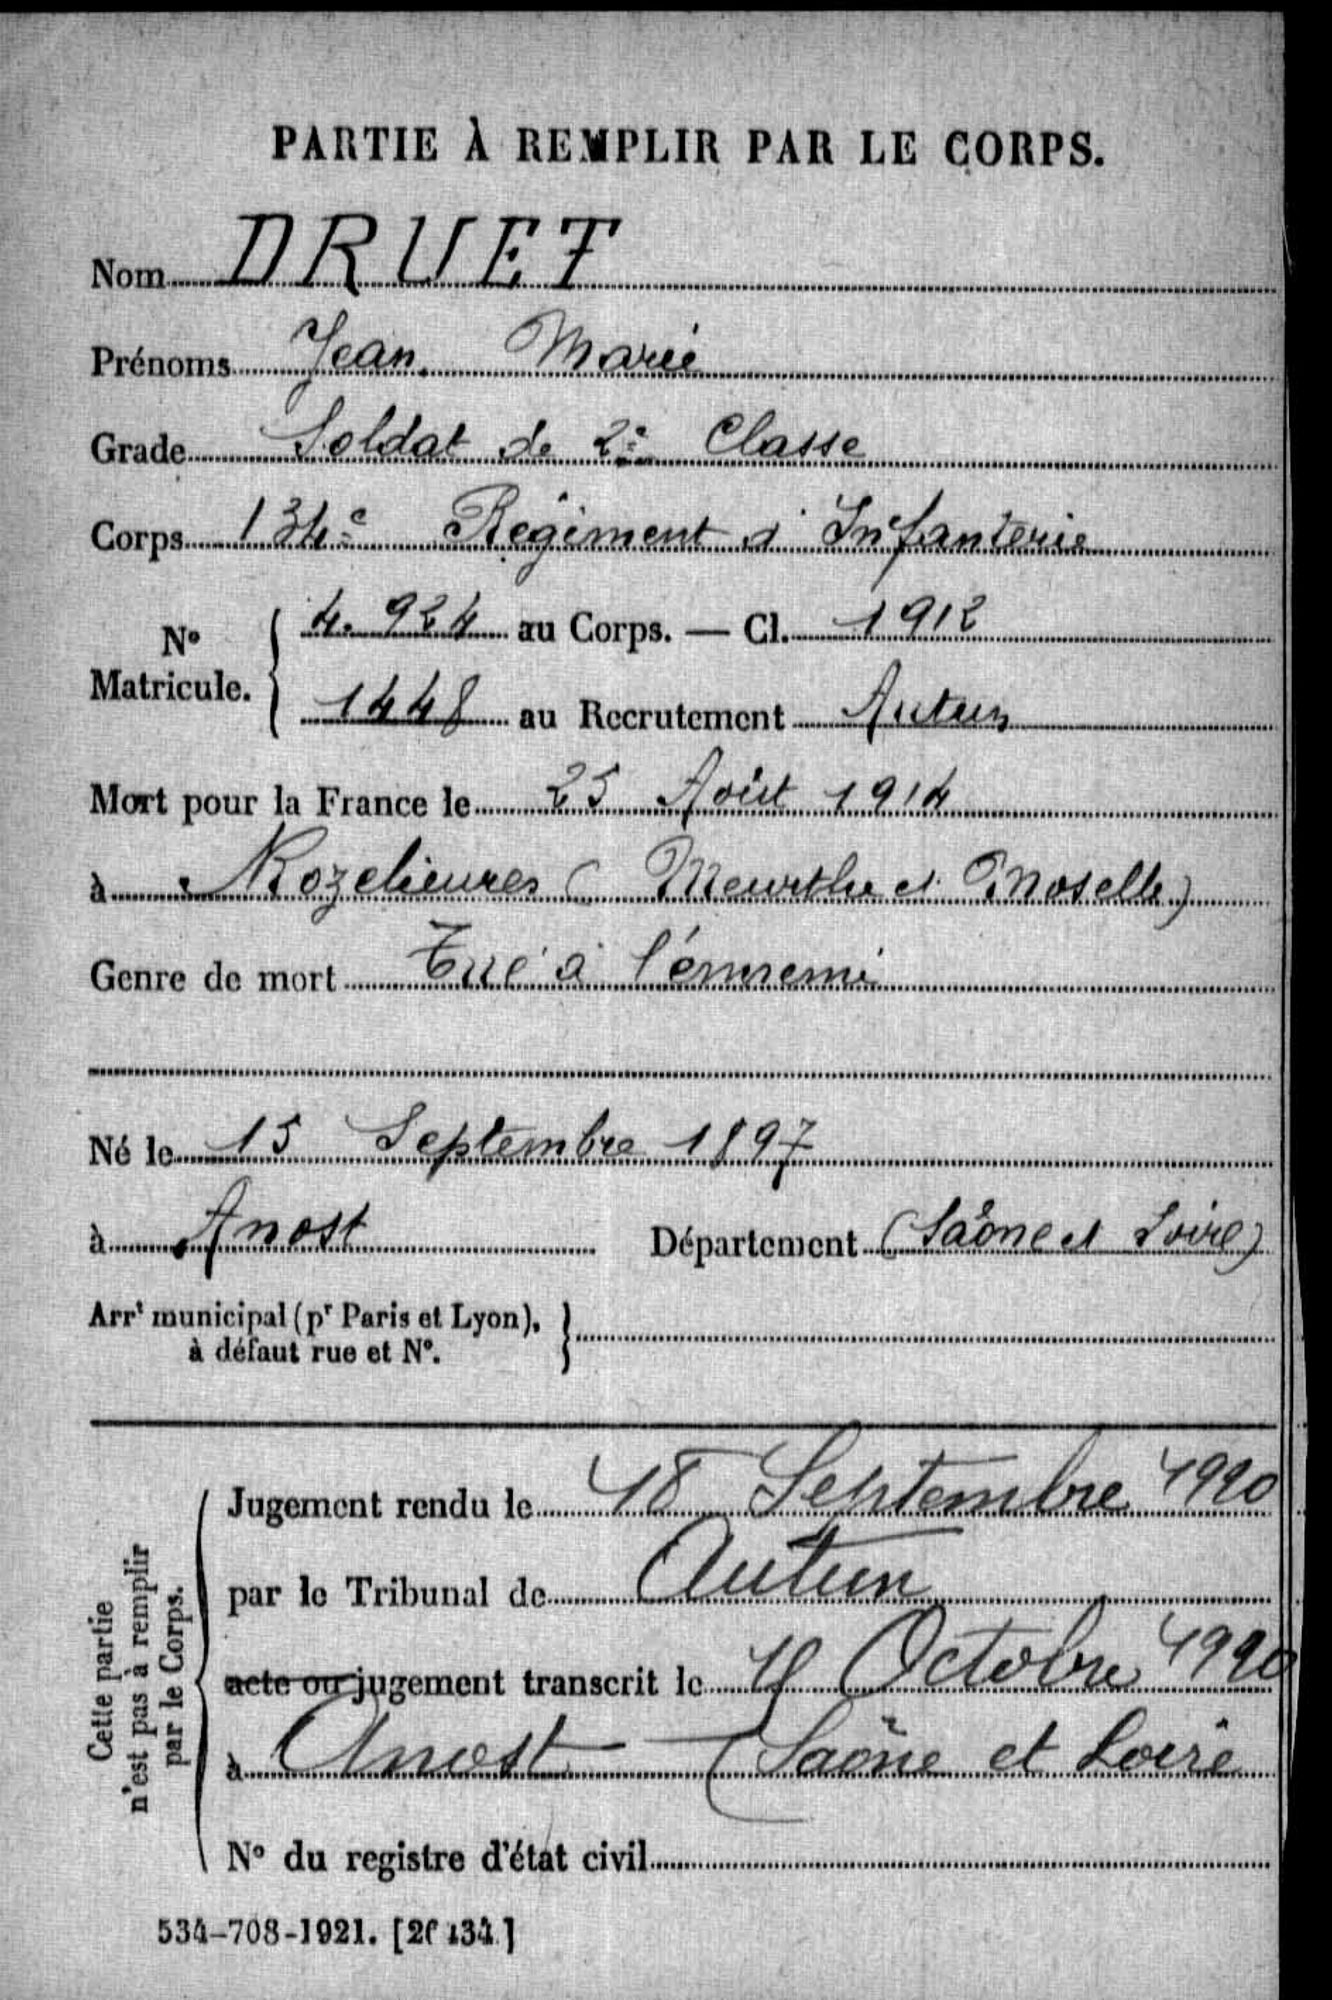 PARTIE À REMPLIR PAR LE CORPS.
Nom DRUET
Prénoms Jean Marie
Grade Soldat de 2e Classe
Corps 134e Régiment d'Infanterie
No Matricule. 4.924 au Corps. — Cl. 1912
1448 au Recrutement Autun
Mort pour la France le 25 Août 1914
à Rozelieures (Meurthe et Moselle)
Genre de mort Tué à l'ennemi
Né le 15 Septembre 1897
à Anost Département (Saône et Loire)
Arrt municipal (pr Paris et Lyon),
à défaut rue et No.
Cette partie
n'est pas à remplir
par le Corps.
Jugement rendu le 18 Septembre 1920
par le Tribunal de Autun
acte ou jugement transcrit le Octobre 1920
à Anost (Saône et Loire
No du registre d'état civil
534-708-1921. [26134.]